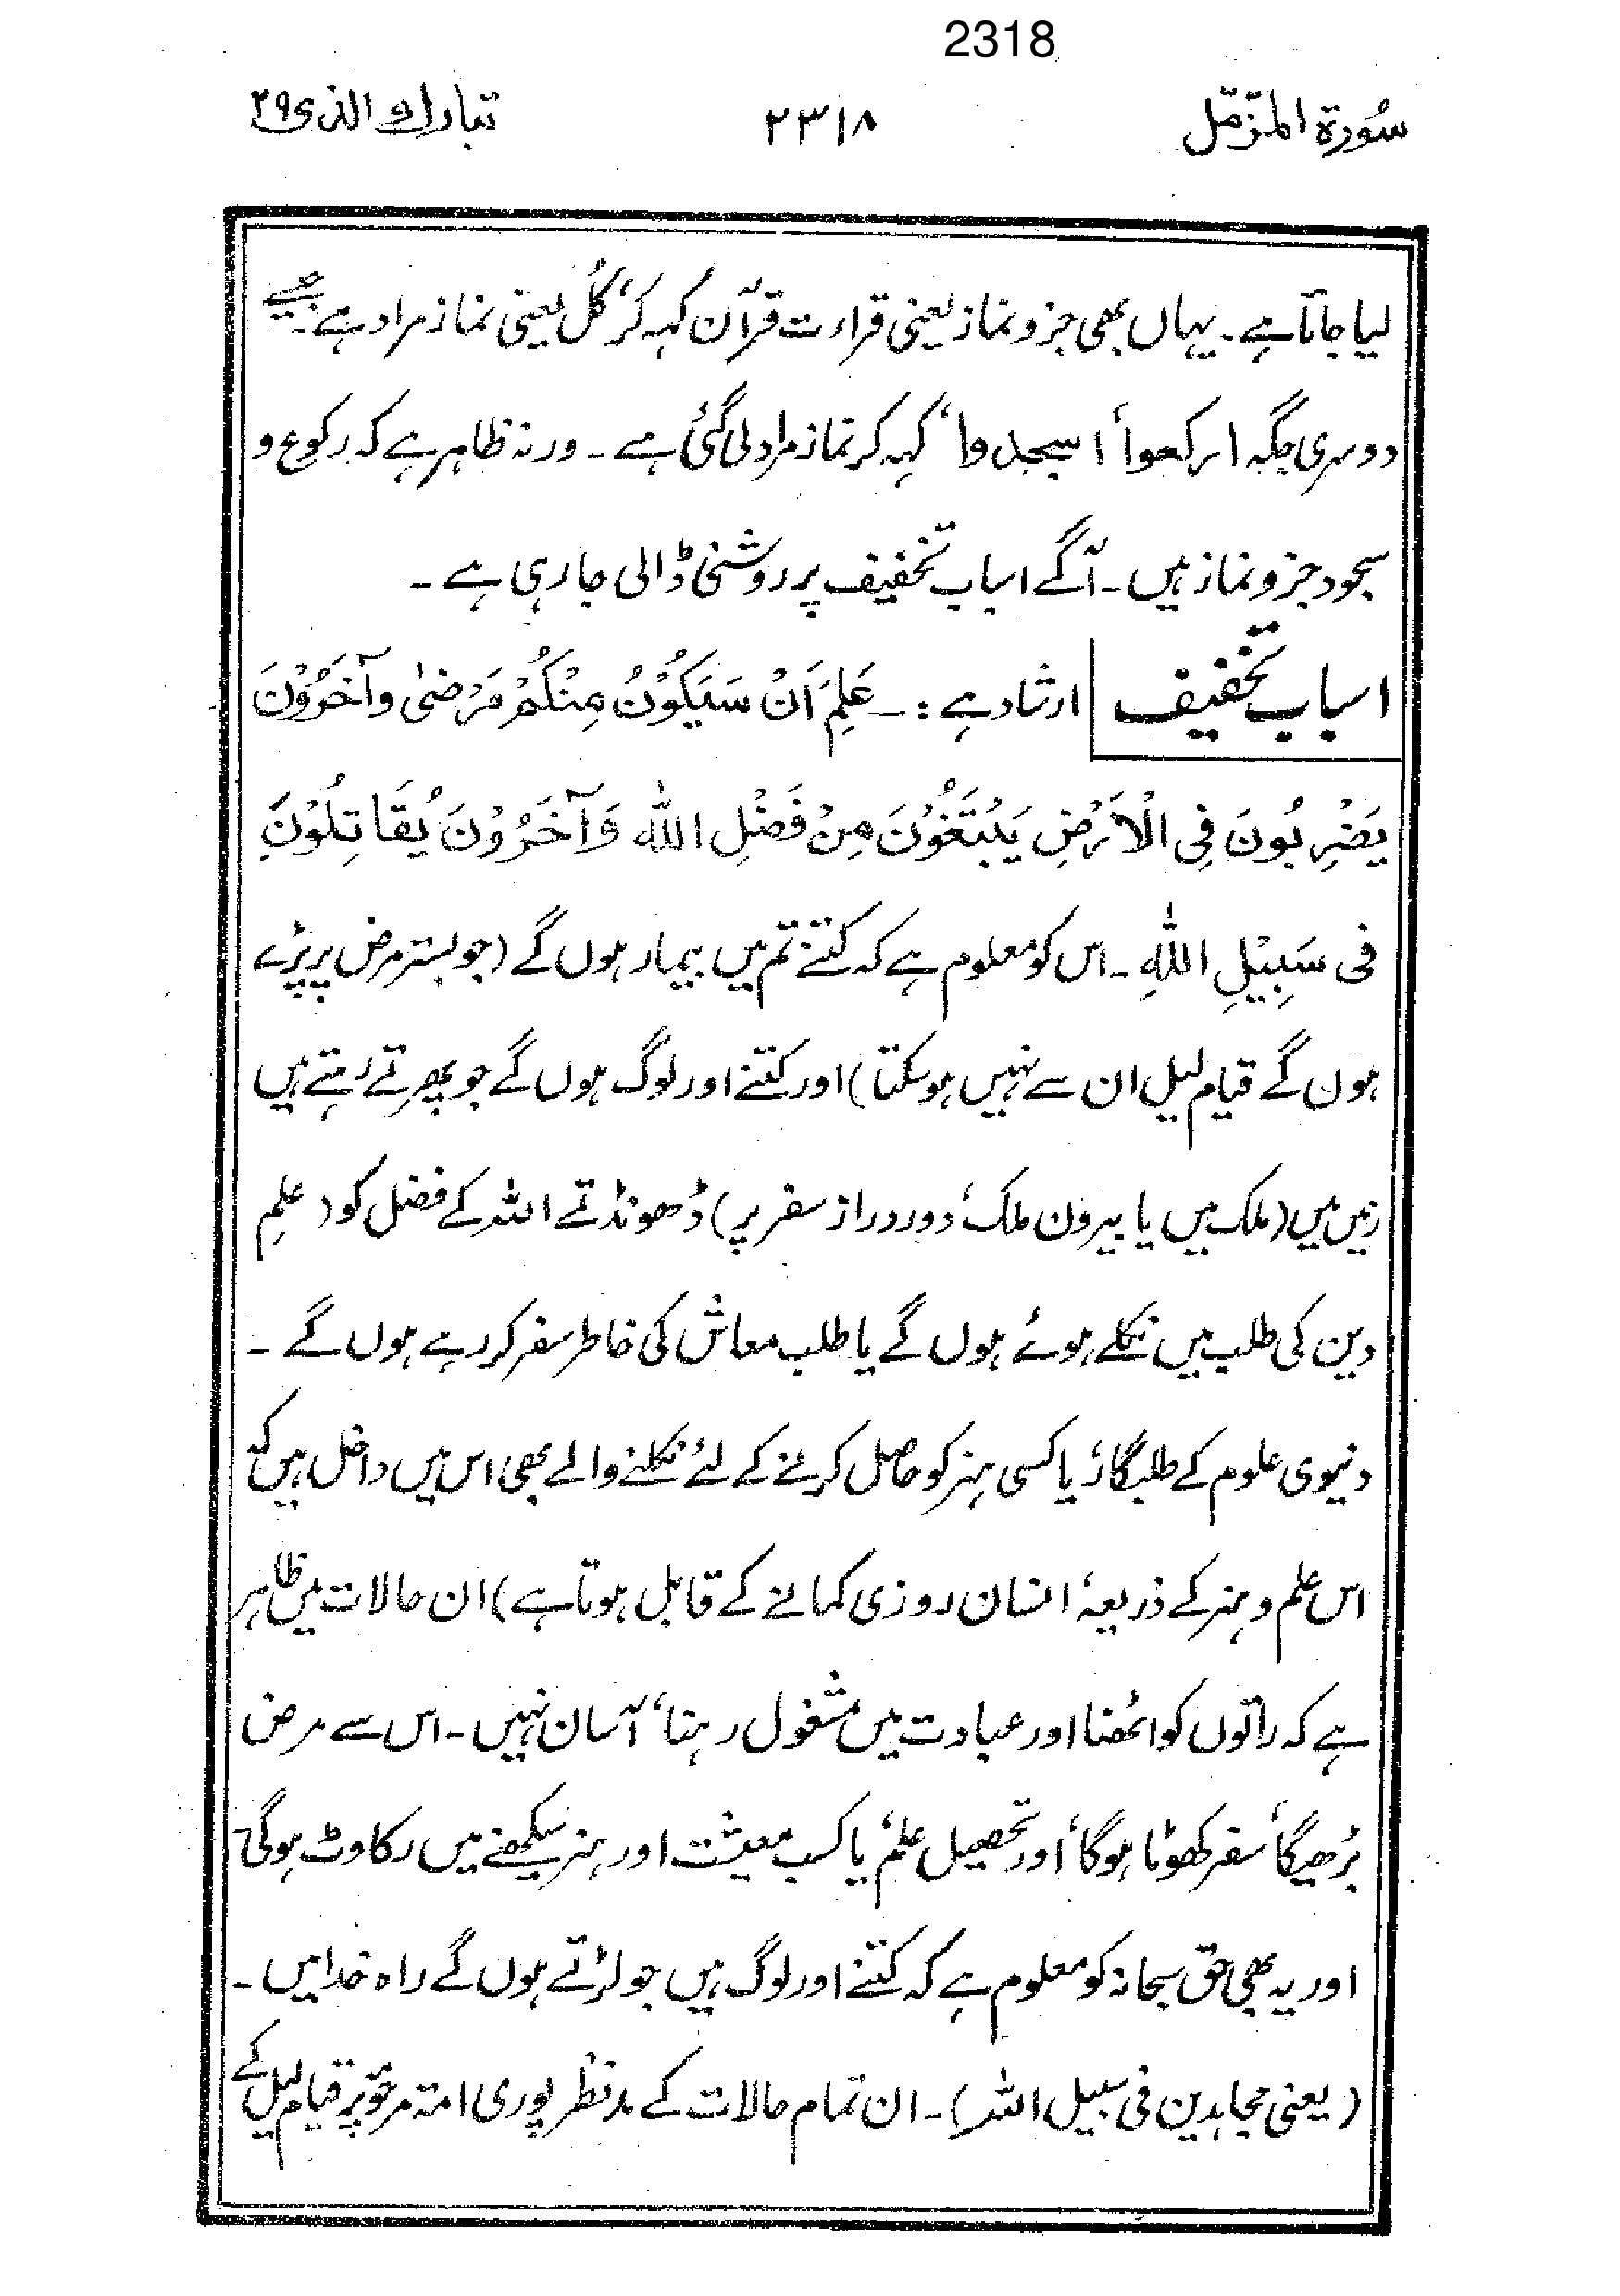 2318
سُورۃ المزّمّل ۲۳۱۸ تبارك الذی ۲۹
لیا جاتا ہے۔ یہاں بھی جزو نماز یعنی قراءت قرآن کہہ کر، کُل یعنی نماز مراد ہے۔ جیسے
دوسری جگہ ارکعوا، اسجدوا، کہہ کر نماز مراد لی گئی ہے۔ ورنہ ظاہر ہے کہ رکوع و
سجود جزو نماز ہیں۔ آگے اسباب تخفیف پر روشنی ڈالی جا رہی ہے۔
اسباب تخفیف ارشاد ہے :۔ عَلِمَ اَنْ سَیَکُوْنُ مِنْکُمْ مَرْضٰی وآخَرُوْنَ
یَضْرِبُونَ فِی الْاَرْضِ یَبْتَغُوْنَ مِنْ فَضْلِ اللہ وَآخَرُوْنَ یُقَاتِلُوْنَ
فی سَبِیْلِ اللہِ ۔ اس کو معلوم ہے کہ کتنے تم میں بیمار ہوں گے (جو بستر مرض پر پڑے
ہوں گے قیام لیل ان سے نہیں ہو سکتا) اور کتنے اور لوگ ہوں گے جو پھرتے رہتے ہیں
زمین میں (ملک میں یا بیرون ملک، دور دراز سفر پر) ڈھونڈتے اللہ کے فضل کو (علمِ
دین کی طلب میں نکلے ہوئے ہوں گے یا طلب معاش کی خاطر سفر کر رہے ہوں گے ۔
دنیوی علوم کے طلبگار، یا کسی ہنر کو حاصل کرنے کے لئے نکلنے والے بھی اس میں داخل ہیں کہ
اس علم و ہنر کے ذریعہ، انسان روزی کمانے کے قابل ہوتا ہے) ان حالات میں ظاہر
ہے کہ راتوں کو اٹھنا اور عبادت میں مشغول رہنا، آسان نہیں۔ اس سے مرض
بڑھیگا، سفر کھوٹا ہوگا، اور تحصیل علم، یا کسب معیشت اور ہنر سیکھنے میں رکاوٹ ہوگی۔
اور یہ بھی حق سبحانہ کو معلوم ہے کہ کتنے اور لوگ ہیں جو لڑتے ہوں گے راہ خدا میں۔
(یعنی مجاہدین فی سبیل اللہ)۔ ان تمام حالات کے مدنظر پوری امۃ پر قیام لیل کے